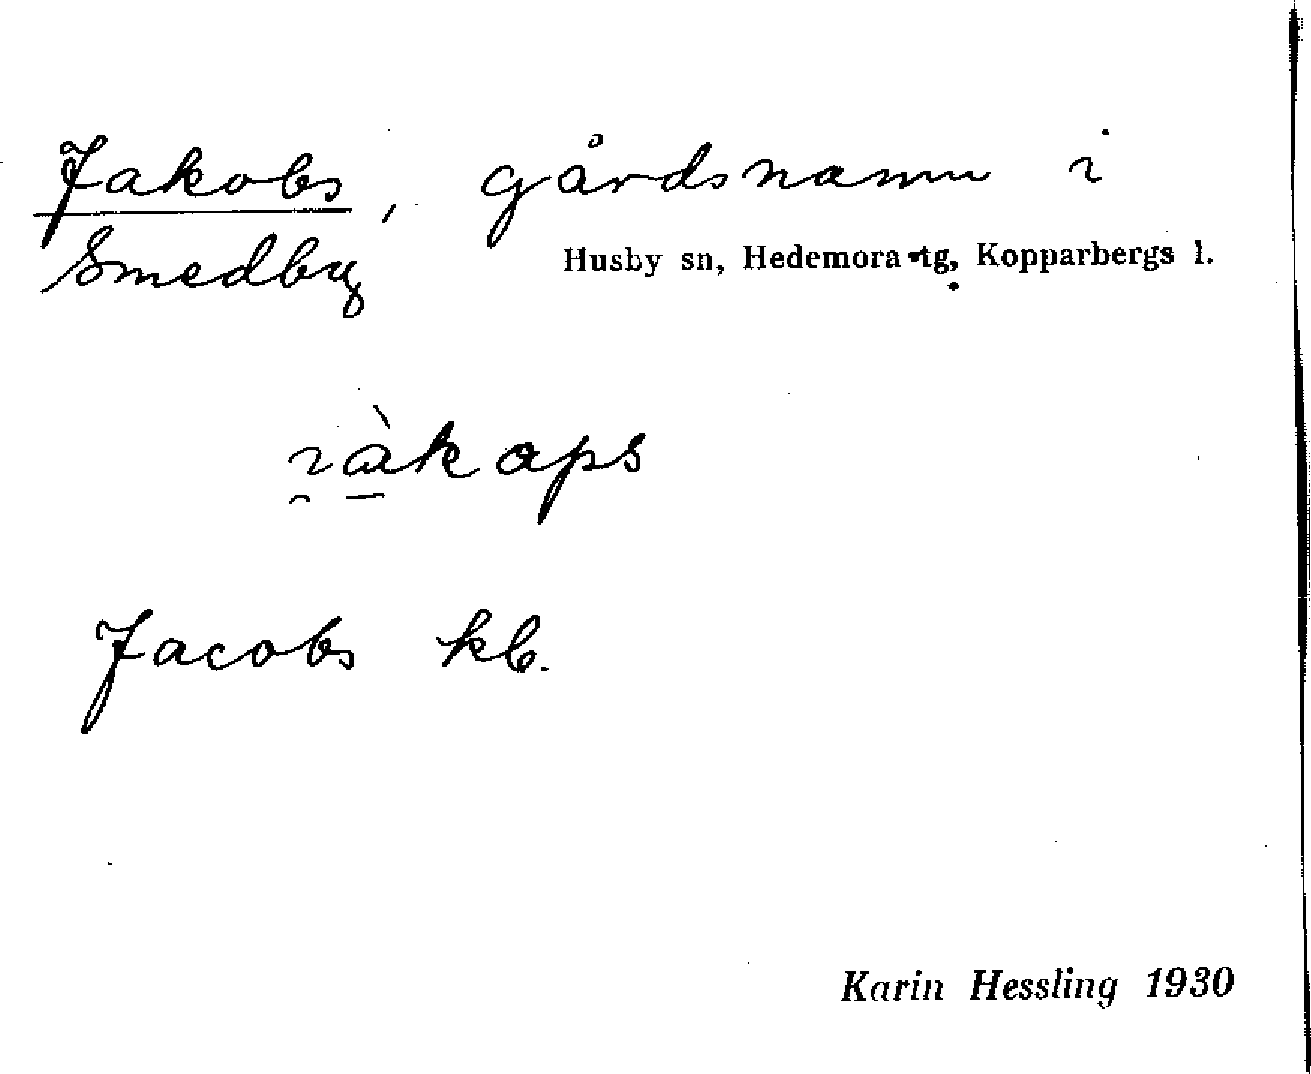 Jakobs, gårdsnamn i
Smedby Husby sn, Hedemora tg, Kopparbergs l.
i̯à̱kaps
Jacobs kb.
Karin Hessling 1930